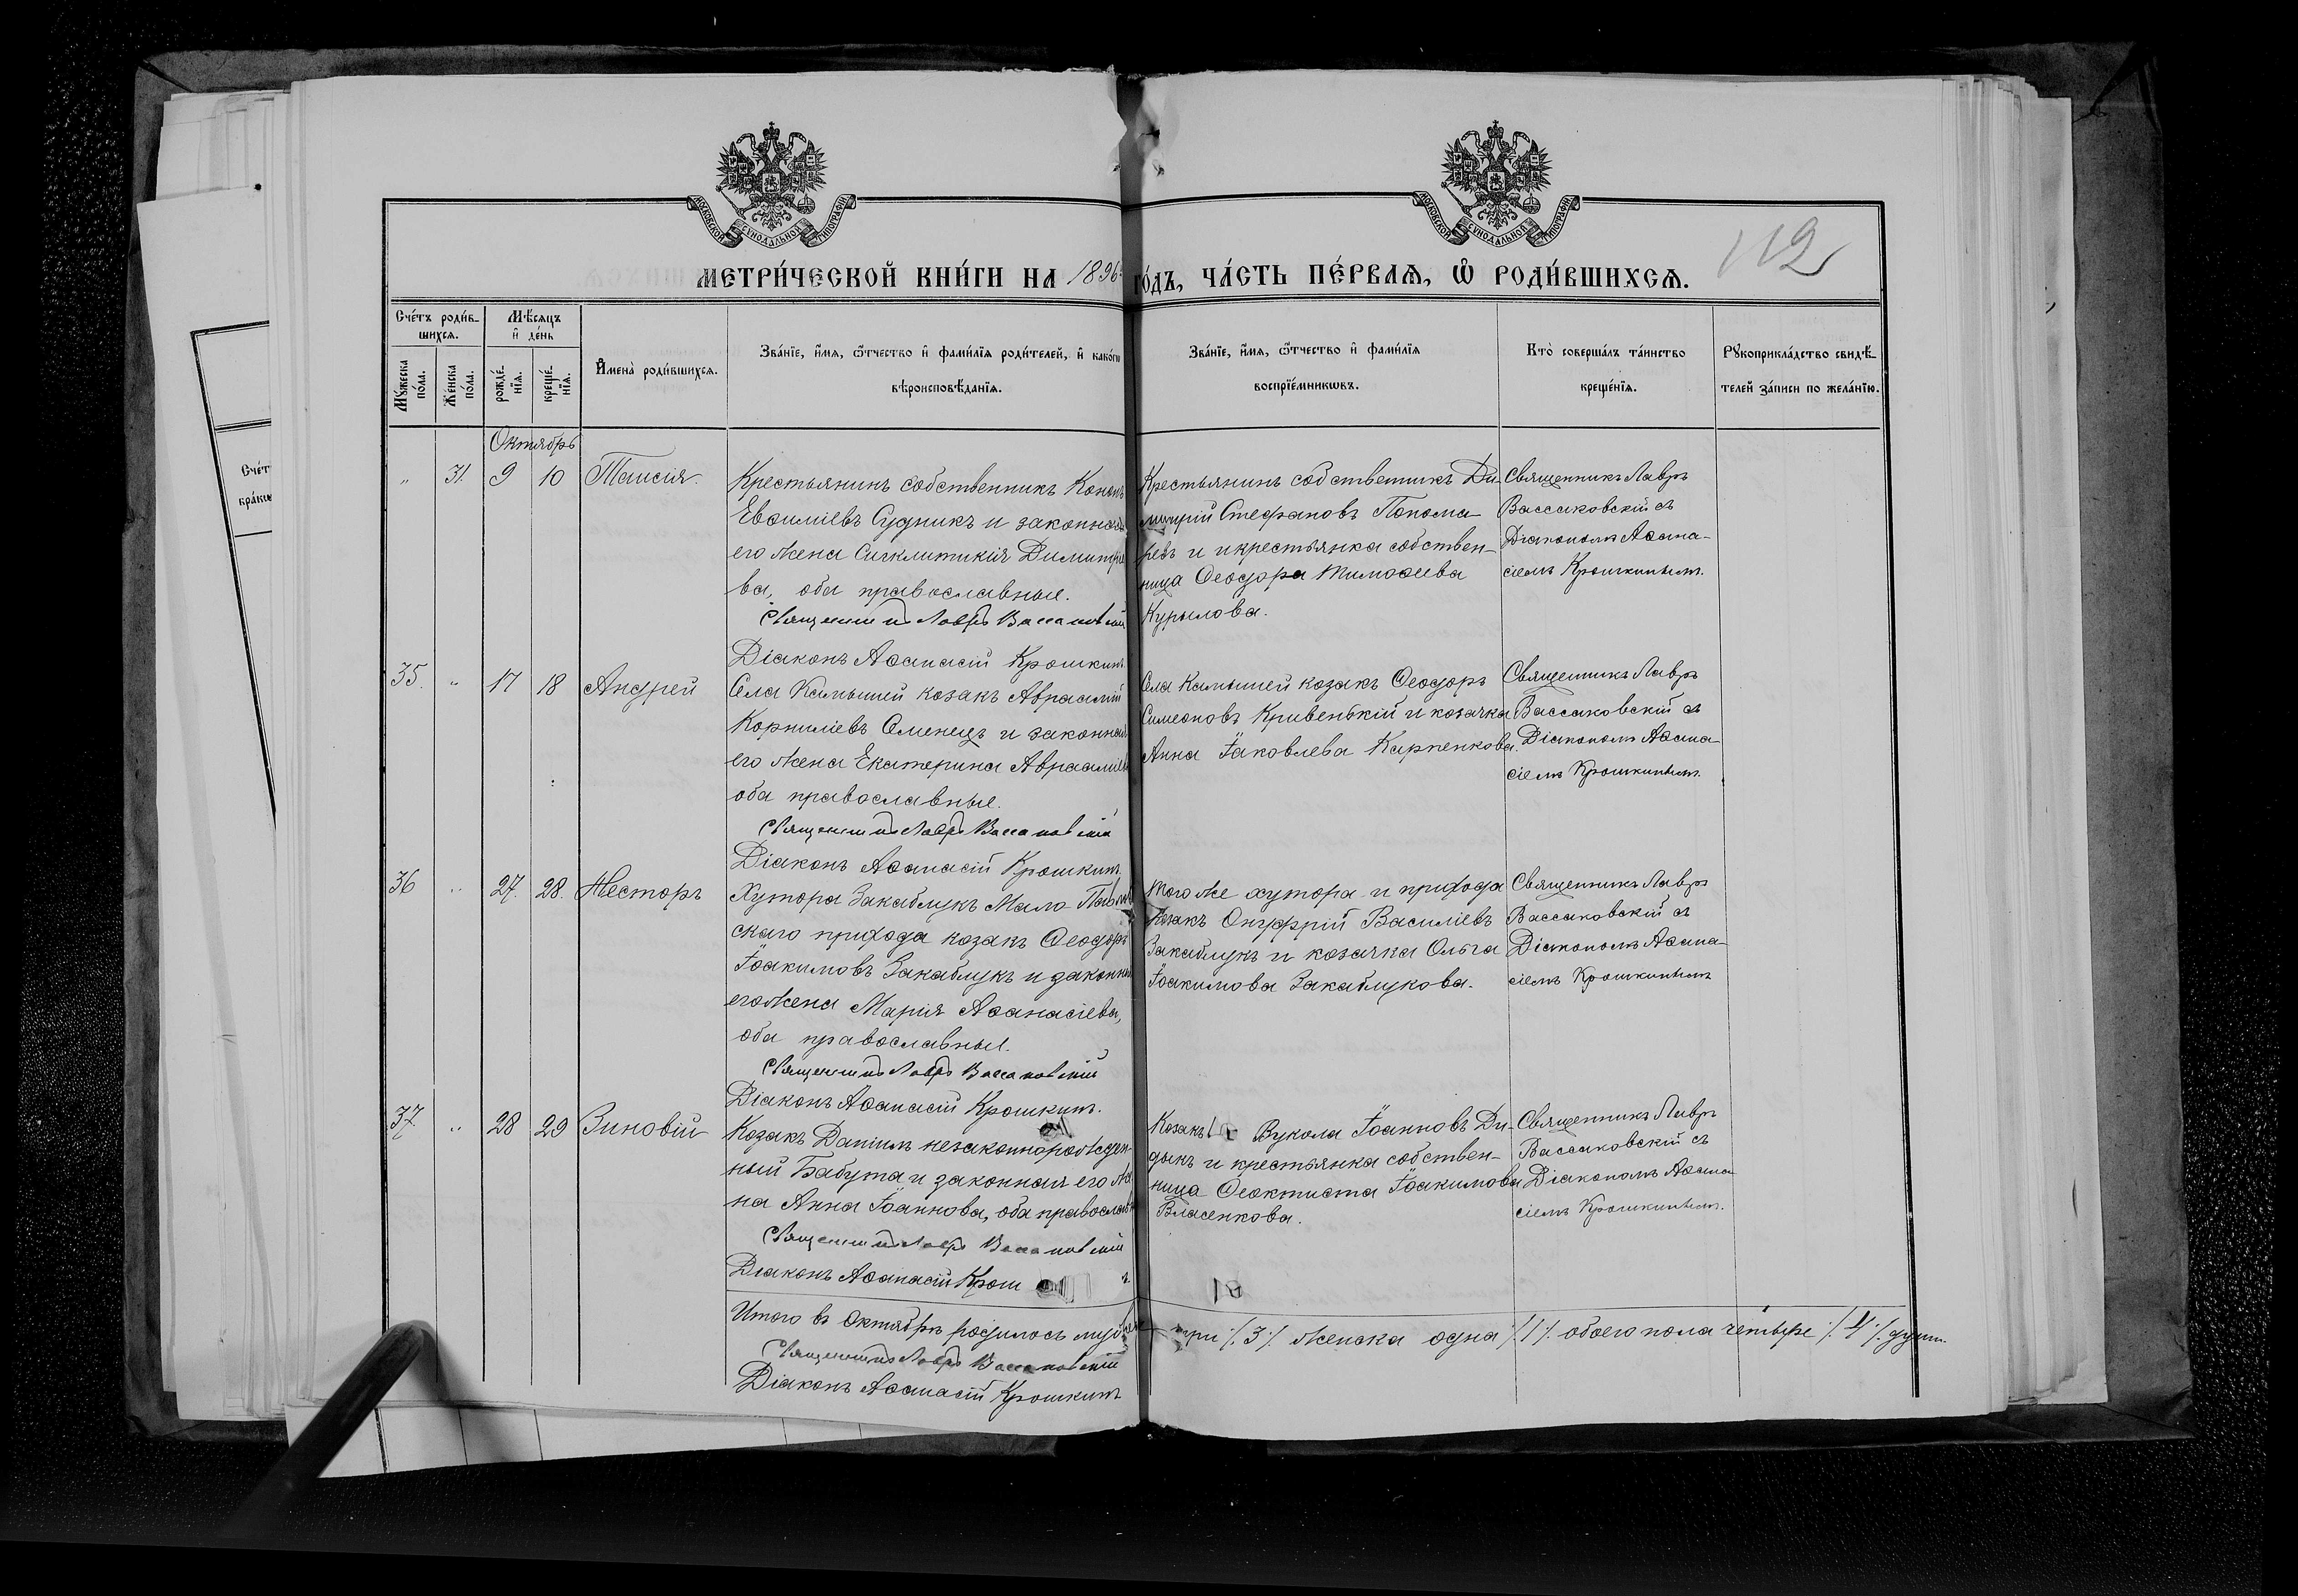 МОСКОВСКОЙ СѴНОДАЛЬНОЙ ТИПОГРАФІИ
МОСКОВСКОЙ СѴНОДАЛЬНОЙ ТИПОГРАФІИ
112
МЕТРИ́ЧЕСКОЙ КНИ́ГИ НА 1896 ГО́ДЪ, ЧА́СТЬ ПЕ́РВАѦ, Ѡ РОДИ́ВШИХСѦ.
Сче́тъ роди́в-
шихсѧ.
Мꙋ́жеска по́ла.
Же́нска по́ла.
Мѣ́сѧцъ
и҆ де́нь
рожде́-
нїѧ.
креще́-
нїѧ.
И҆мена̀ роди́вшихсѧ.
Зва́нїе, и҆́мѧ, ѻ҆́тчество и҆ фами́лїѧ роди́телей, и҆ како́гѡ
вѣроисповѣ́данїѧ.
Зва́нїе, и҆́мѧ, ѻ҆́тчество и҆ фами́лїѧ
воспрїе́мникѡвъ.
Кто̀ соверша́лъ та́инство
креще́нїѧ.
Рꙋкоприкла́дство свидѣ́-
телей за́писи по жела́нїю.
Сче́т
бра́кѡ
Октябрь
„ 31. 9 10 Таисія.
Крестьянинъ собственникъ Кононъ
Евѳиміевъ Судникъ и законная
его жена Сигклитикія Димитріе
ва, оба православные.
Священникъ Лавръ Вассаковскій
Діаконъ Аѳанасій Крошкинъ
Крестьянинъ собственникъ Ди-
митрій Стефановъ Понома-
ревъ и крестьянка собствен-
ница Ѳеодора Тимоѳеева
Курылова.
Священникъ Лавръ
Вассаковскій съ
Діакономъ Аѳана-
сіемъ Крошкинымъ.
35. „ 17 18 Андрей
Села Камышей козакъ Авраамій
Корниліевъ Оменецъ и законная
его жена Екатерина Авраамiева
оба православные.
Священникъ Лавръ Вассаковскій
Діаконъ Аѳанасій Крошкинъ
Села Камышей козакъ Ѳеодоръ
Симеоновъ Кривенькій и козачка
Анна Іаковлева Карпенкова.
Священникъ Лавръ
Вассаковскій съ
Діакономъ Аѳана-
сіемъ Крошкинымъ.
36 „ 27. 28. Несторъ
Хутора Закаблукъ Мало-Павлов
скаго прихода козакъ Ѳеодоръ
Іоакимовъ Закаблукъ и законная
его жена Марія Аѳанасіева,
оба православные.
Священникъ Лавръ Вассаковскій
Діаконъ Аѳанасій Крошкинъ.
Того же хутора и прихода
козакъ Онуфрій Василіевъ
Закаблукъ и козачка Ольга
Іоакимова Закаблукова.
Священникъ Лавръ
Вассаковскій съ
Діакономъ Аѳана-
сіемъ Крошкинымъ
37. „ 28 29 Зиновій
Козакъ Даніилъ незаконнорожден-
ный Бабута и законная его же
на Анна Іоаннова, оба православн
Священникъ Лавръ Вассаковскій
Діаконъ Аѳанасій Крош
Козакъ Вукола Іоанновъ Ди-
дыкъ и крестьянка собствен-
ница Ѳеоктиста Іоакимова
Власенкова.
Священникъ Лавръ
Вассаковскій съ
Діакономъ Аѳана
сіемъ Крошкинымъ.
Итого въ Октябрѣ родилось мужеска три /.3./ женска одна /.1./. обоего пола четыре /.4./. души.
Священникъ Лавръ Вассаковскій
Діаконъ Аѳанасій Крошкинъ